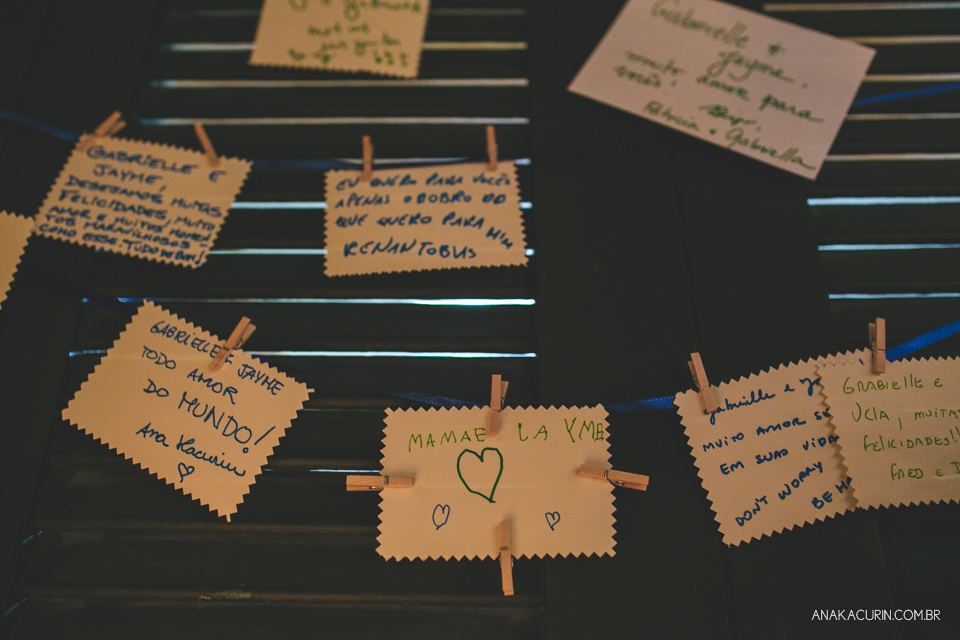 Gabrielle +
Jayme,
muito amor para
vocês!
Bjs,
Fabrícia + Gabriella
GABRIELLE E
JAYME,
DESEJAMOS MUITAS
FELICIDADES, MUITO
AMOR E MUITOS
MARAVILHOSOS
COMO ESSE. TUDO DE BOM!
EU QUERO PARA VOCÊS
APENAS O DOBRO DO
QUE QUERO PARA MIM
RENANTOBUS
GABRIELLE + JAYME
TODO AMOR
DO MUNDO!
Ana Kacurin
MAMAE LA YME
gabrielle e
MUITO AMOR
EM SUAS VIDA
DON'T WORRY
BE H
GRABIELLE E
UCLA, MUITA
FELICIDADES!
FRED E
ANAKACURIN.COM.BR